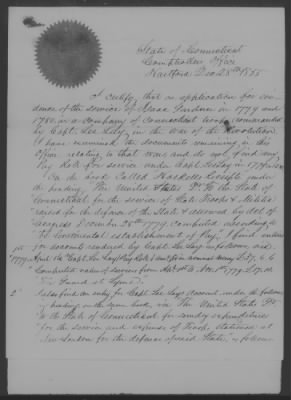 State of Connecticut
Comptrollers Office
Hartford Dec. 28th 1855
I certify, that on application for evi-
dence of the service of Isaac in 1779 and
1780, in a company of Connecticut troops commanded
by Capt. Lee Lay, in the war of the Revolution
I have examined the documents remaining in this
Office relating to that war and do not find any
Pay Roll for service under Capt. Lee Lay in 1779 or 80.
On the book Called Haskell's Receipts under
the heading, "The United States Dr. to the State of
Connecticut for the service of State Troops & Militia
raised for the defence of the State & allowed by Act of
Congress December 1779, Computed according to
the Continental establishment of pay," I find entries
for accounts rendered by Capt. Lee Lay as follows, viz
1st
1779 April 1st Capt. Lee Lay, Pay Roll
Computed value of services from to Nov 1st 1779
"
2d I also find an entry for Capt. Lee Lay's account under the following
heading on the same book viz The United States Dr.
to the State of Connecticut for sundry expenditures
for the service and expense of Troops stationed at
New London for the defence of said State, as follows